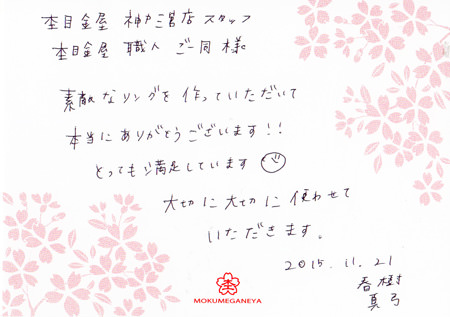 杢目金屋 神戸三宮店 スタッフ
杢目金屋 職人 ご一同様
素敵なリングを作っていただいて
本当にありがとうございます!!
とっても満足しています
大切に大切に使わせて
いただきます。
2015.11.21
春樹
真弓
MOKUMEGANEYA